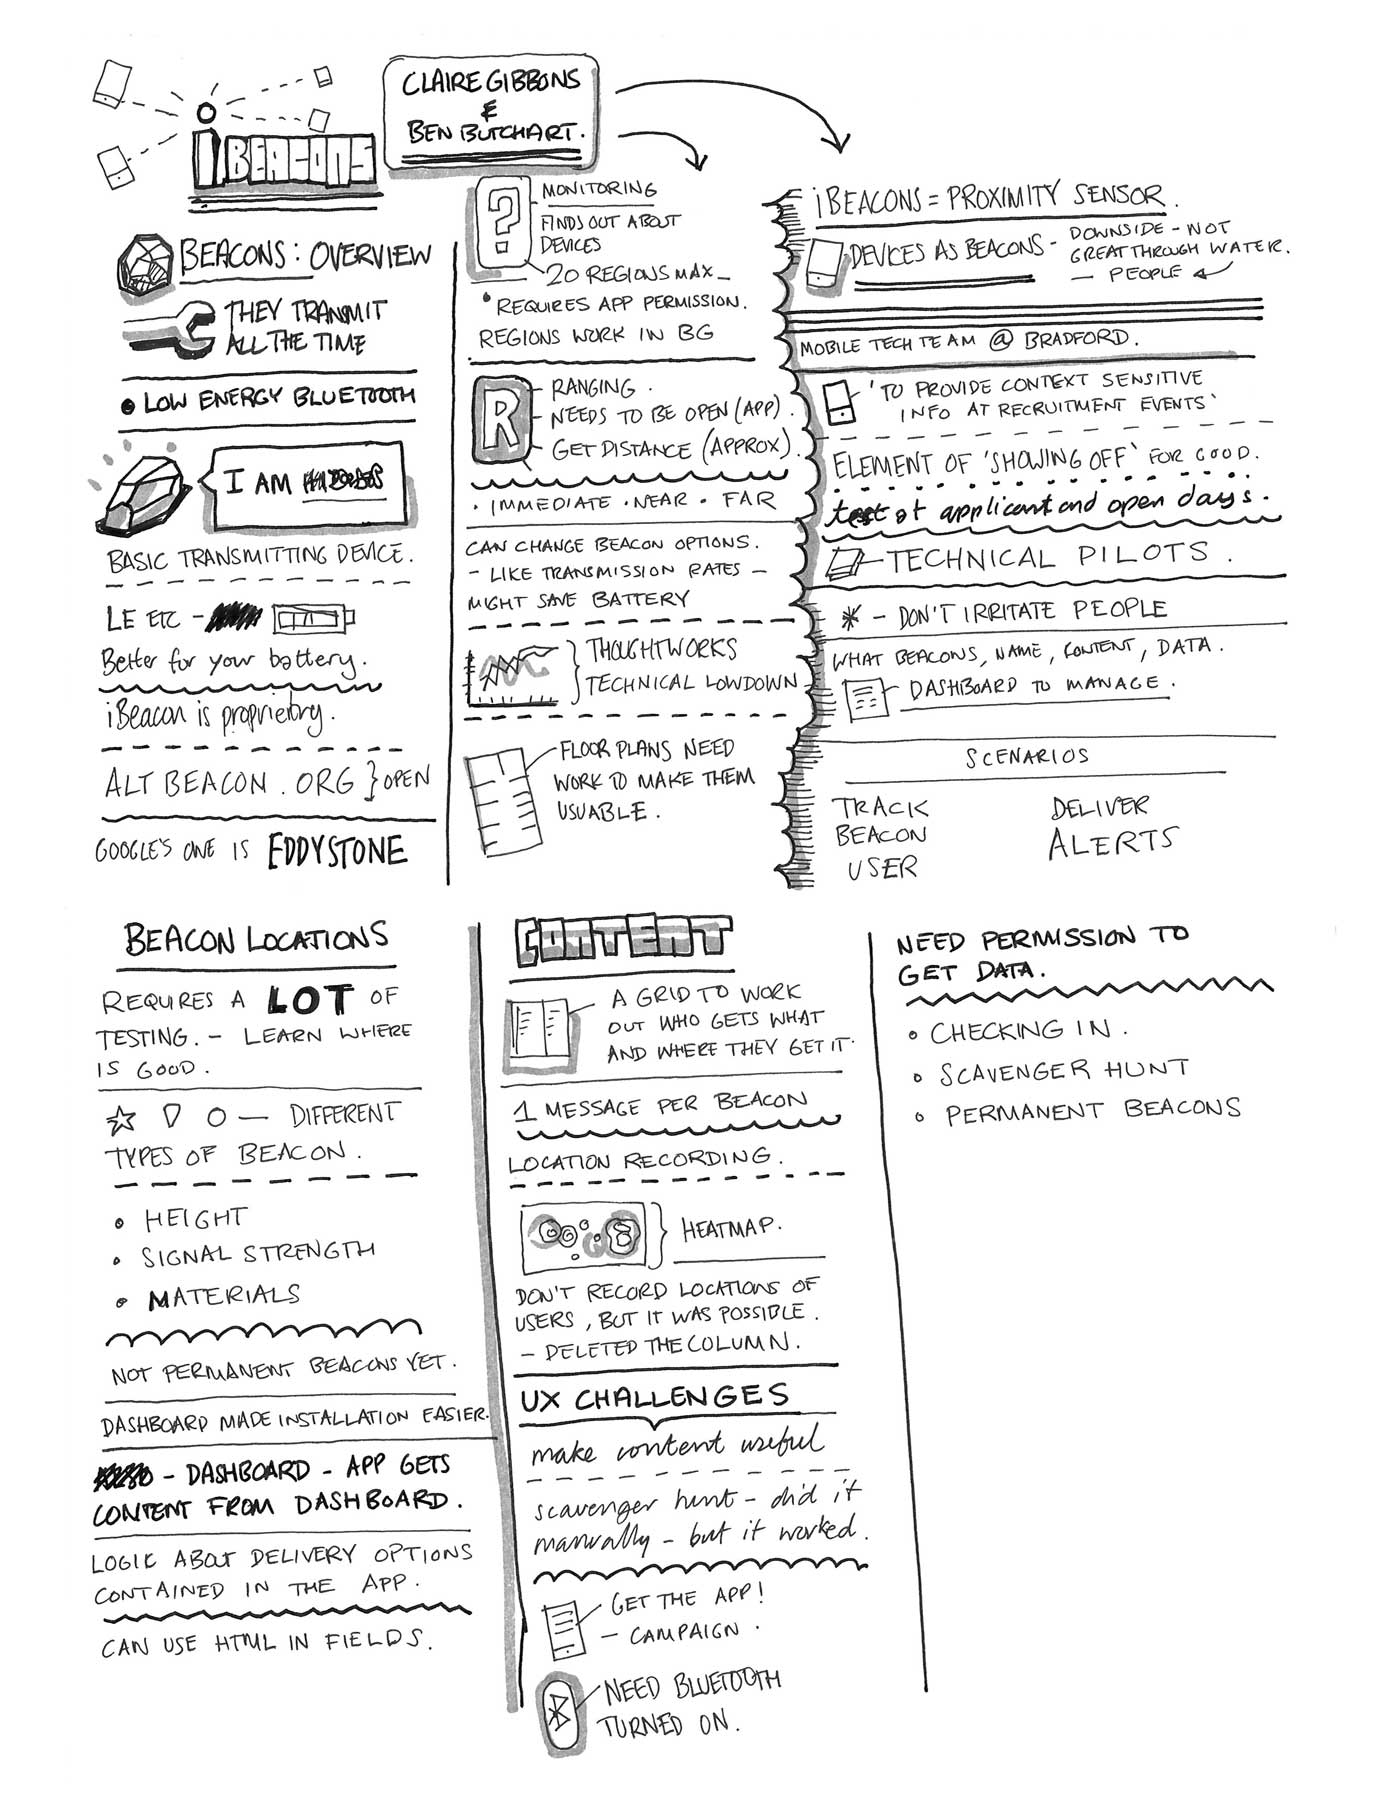 iBEACONS
CLAIRE GIBBONS
&
BEN BUTCHART.
BEACONS: OVERVIEW
THEY TRANSMIT
ALL THE TIME
• LOW ENERGY BLUETOOTH
I AM
BASIC TRANSMITTING DEVICE.
LE ETC -
Better for your battery.
iBeacon is proprietry.
ALT BEACON. ORG } OPEN
GOOGLE'S ONE IS EDDYSTONE
?
MONITORING
FINDS OUT ABOUT
DEVICES
20 REGIONS MAX -
• REQUIRES APP PERMISSION.
REGIONS WORK IN BG
R
RANGING.
NEEDS TO BE OPEN (APP).
GET DISTANCE (APPROX).
• IMMEDIATE • NEAR • FAR
CAN CHANGE BEACON OPTIONS.
- LIKE TRANSMISSION RATES -
MIGHT SAVE BATTERY
THOUGHTWORKS
TECHNICAL LOWDOWN
FLOOR PLANS NEED
WORK TO MAKE THEM
USUABLE.
iBEACONS = PROXIMITY SENSOR.
DEVICES AS BEACONS -
DOWNSIDE - NOT
GREAT THROUGH WATER.
- PEOPLE
MOBILE TECH TEAM @ BRADFORD.
'TO PROVIDE CONTEXT SENSITIVE
INFO AT RECRUITMENT EVENTS'
ELEMENT OF 'SHOWING OFF' FOR GOOD.
test at applicant and open days.
TECHNICAL PILOTS.
* - DON'T IRRITATE PEOPLE
WHAT BEACONS, NAME, CONTENT, DATA.
DASHBOARD TO MANAGE.
SCENARIOS
TRACK
BEACON
USER
DELIVER
ALERTS
BEACON LOCATIONS
REQUIRES A LOT OF
TESTING. - LEARN WHERE
IS GOOD.
- DIFFERENT
TYPES OF BEACON.
• HEIGHT
• SIGNAL STRENGTH
• MATERIALS
NOT PERMANENT BEACONS YET.
DASHBOARD MADE INSTALLATION EASIER.
- DASHBOARD - APP GETS
CONTENT FROM DASHBOARD.
LOGIC ABOUT DELIVERY OPTIONS
CONTAINED IN THE APP.
CAN USE HTML IN FIELDS.
CONTENT
A GRID TO WORK
OUT WHO GETS WHAT
AND WHERE THEY GET IT.
1 MESSAGE PER BEACON
LOCATION RECORDING.
HEATMAP.
DON'T RECORD LOCATIONS OF
USERS, BUT IT WAS POSSIBLE.
- DELETED THE COLUMN.
UX CHALLENGES
make content useful
scavenger hunt - did it
manually - but it worked.
GET THE APP!
- CAMPAIGN.
NEED BLUETOOTH
TURNED ON.
NEED PERMISSION TO
GET DATA.
• CHECKING IN.
• SCAVENGER HUNT
• PERMANENT BEACONS